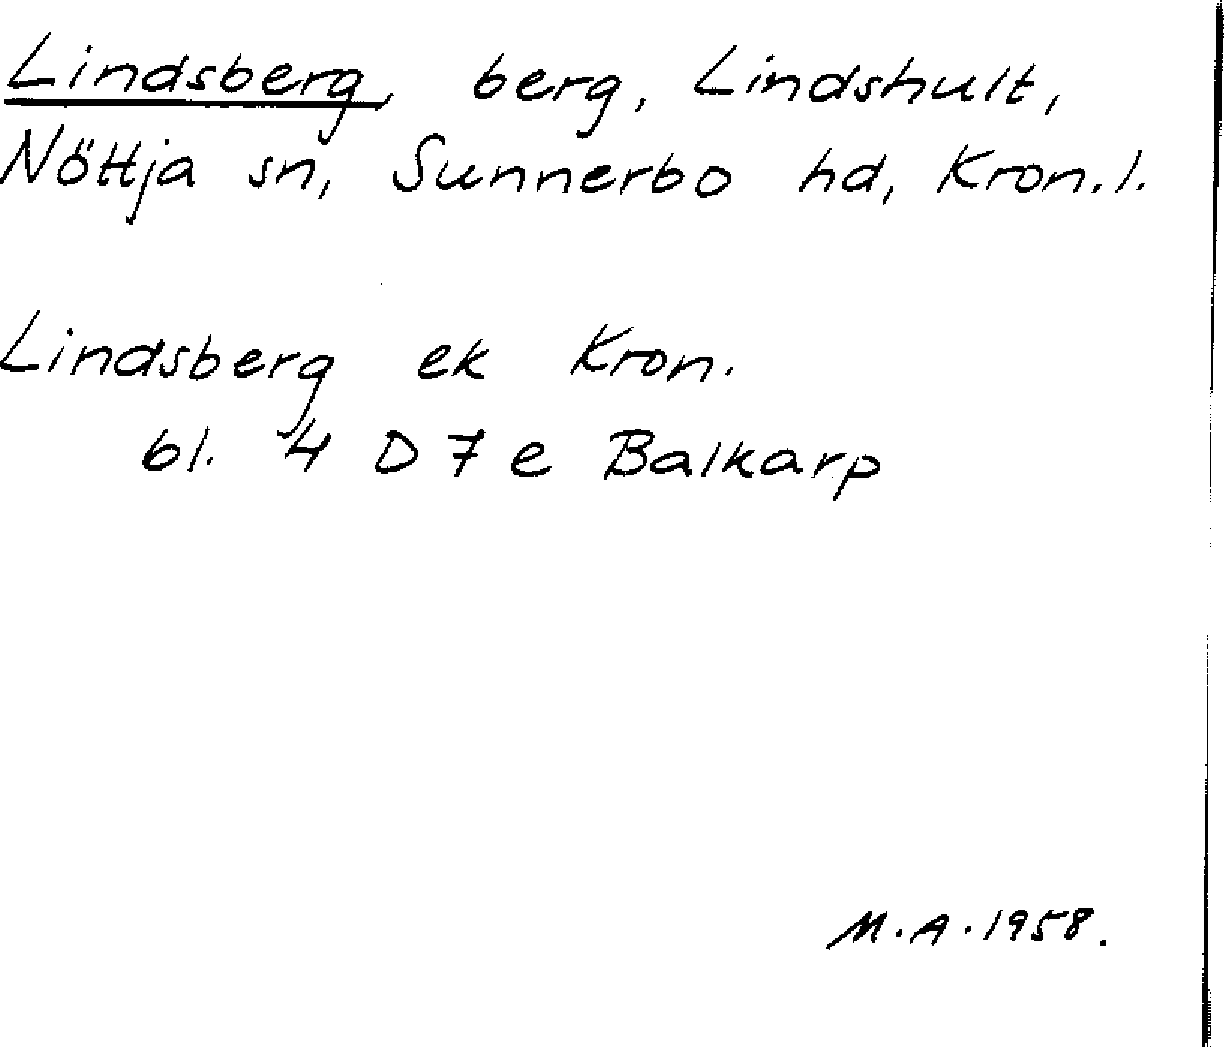 Lindsberg, berg, Lindshult,
Nöttja sn, Sunnerbo hd, Kron.l.
Lindsberg ek Kron.
bl. 4 D 7 e Balkarp
M.A.1958.